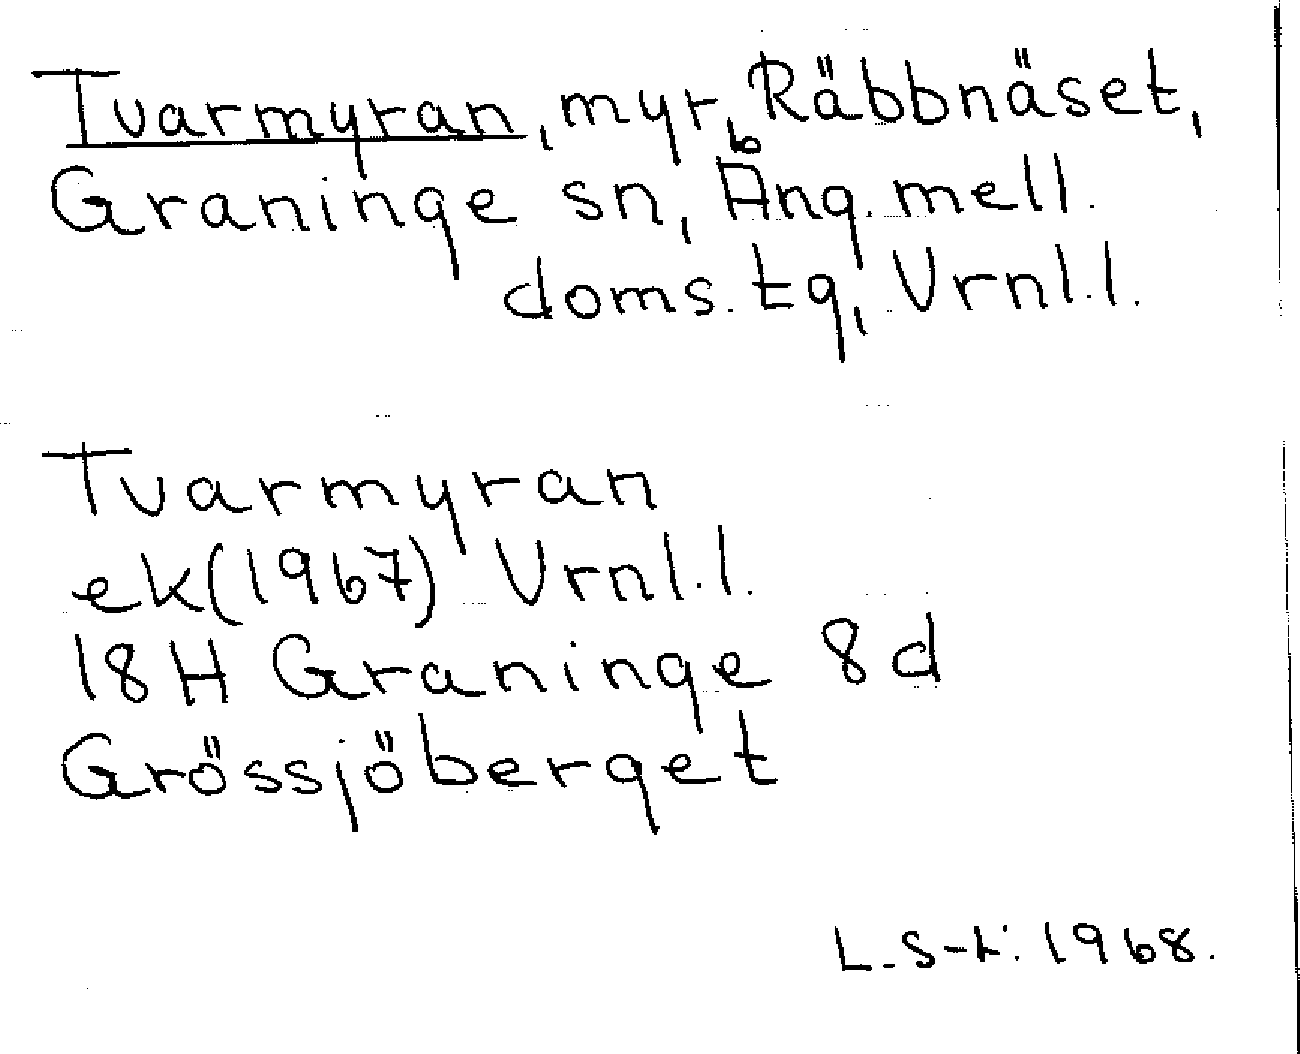 Tvarmyran, myr, Räbbnäset,
Graninge sn, Ång. mell.
doms. tg, Vrnl.l.
Tvarmyran
ek(1967) Vrnl.l.
18H Graninge 8d
Grössjöberget
L. S-t. 1968.